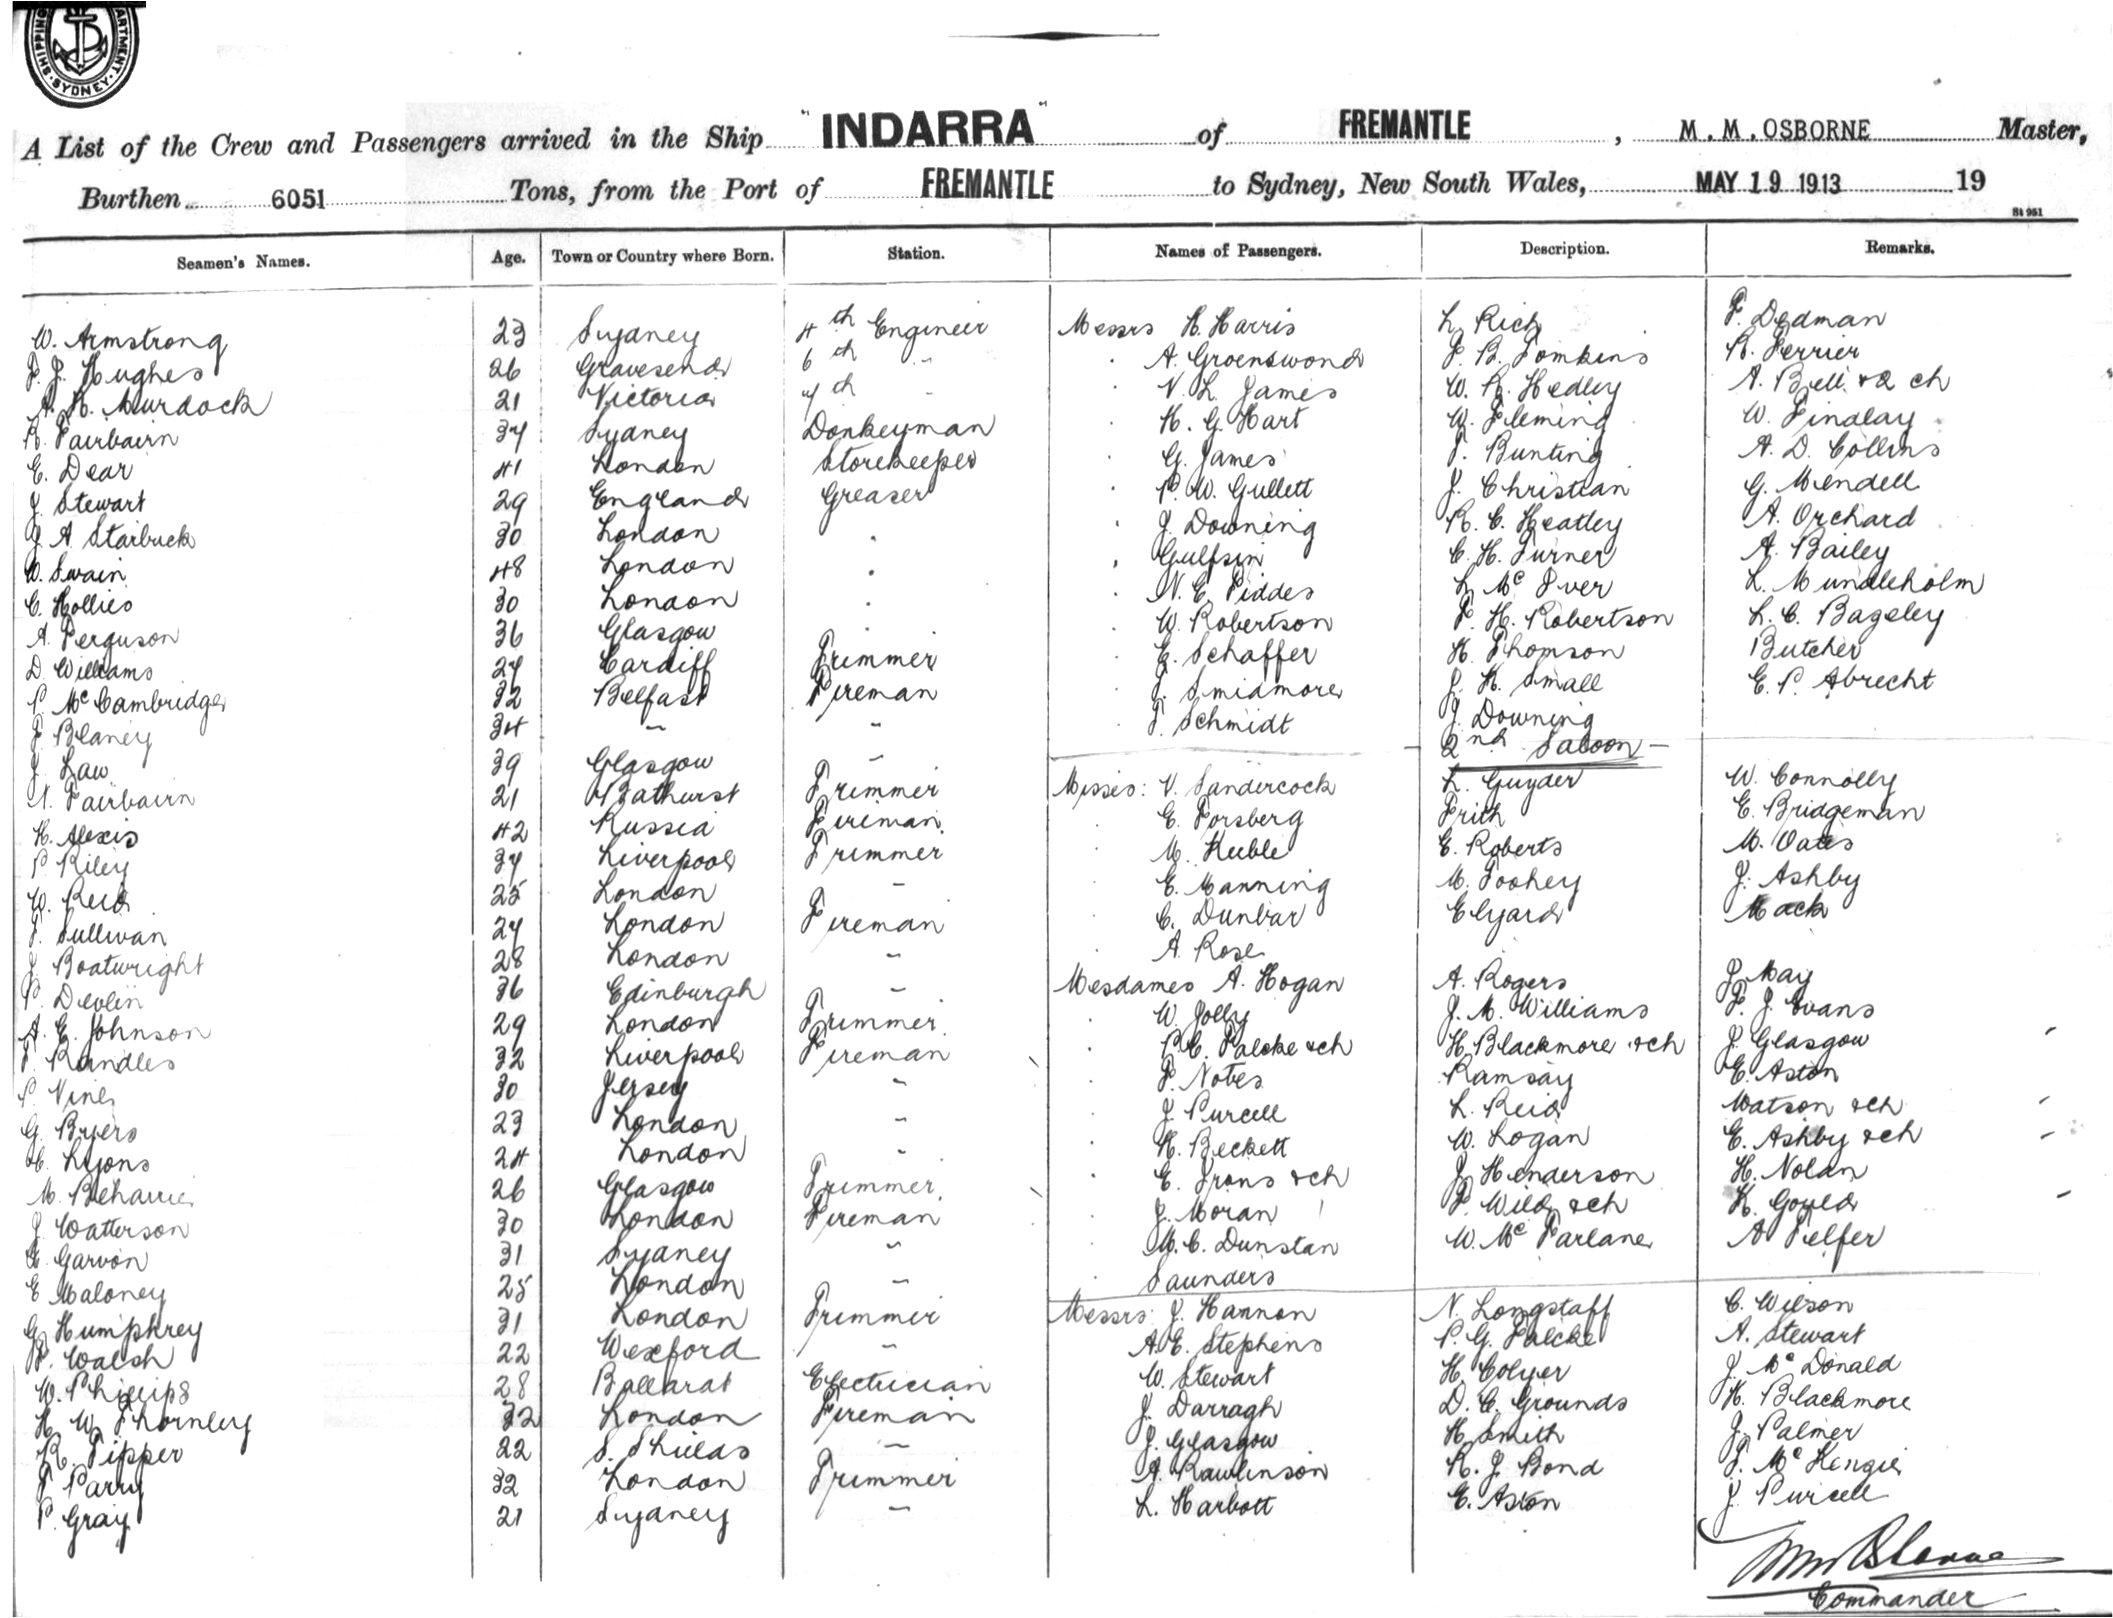 SHIPPING DEPARTMENT · SYDNEY ·
A List of the Crew and Passengers arrived in the Ship "INDARRA" of FREMANTLE, M. M. OSBORNE Master,
Burthen 6051 Tons, from the Port of FREMANTLE to Sydney, New South Wales, MAY 19 1913 19
St 951
Seamen's Names. Age. Town or Country where Born. Station. Names of Passengers. Description. Remarks.
W. Armstrong 23 Sydney 4th Engineer Messrs H. Harris L. Rich F. Dedman
F. J. Hughes 26 Gravesend 6th " A. Groenswond F. B. Tomkins R. Ferrier
A. R. Murdock 21 Victoria 7th " V. L. James W. R. Hedley A. Bell & 2 ch
R. Fairbairn 37 Sydney Donkeyman H. G. Hart W. Fleming W. Findlay
E. Dear 41 London Storekeeper G. James T. Bunting A. D. Collins
J. Stewart 29 England Greaser P. W. Gullett J. Christian G. Mendell
J. A. Starbuck 30 London " J. Downing R. C. Heatley A. Orchard
W. Swain 48 London " Gulfsin C. H. Turner A. Bailey
C. Hollies 30 London " N. E. Piddes L. McIver L. Mundleholm
A. Ferguson 36 Glasgow " W. Robertson F. H. Robertson L. C. Bagsley
D. Williams 27 Cardiff Trimmer E. Schaffer H. Thomson Butcher
P. McCambridge 32 Belfast Fireman J. Smidmore J. H. Small E. P. Abrecht
J. Blaney 34 " " T. Schmidt J. Downing
2nd Saloon
J. Law 39 Glasgow " Misses: V. Sandercock L. Guyder W. Connolly
N. Fairbairn 21 Bathurst Trimmer E. Forsberg Frith E. Bridgeman
H. Alexis 42 Russia Fireman M. Keeble E. Roberts M. Oates
P. Riley 37 Liverpool Trimmer E. Manning M. Toohey J. Ashby
W. Reid 25 London " C. Dunbar Elyard Mack
T. Sullivan 27 London Fireman A. Rose
J. Boatwright 28 London " Mesdames A. Hogan A. Rogers J. May
P. Devlin 36 Edinburgh " W. Jolly J. M. Williams F. J. Evans
A. E. Johnson 29 London Trimmer P. C. Palcke & ch H. Blackmore & ch J. Glasgow
T. Randles 32 Liverpool Fireman F. Notes Ramsay E. Aston
P. Vine 30 Jersey " J. Purcell L. Reid Watson & ch
G. Byers 23 London " H. Beckett W. Logan E. Ashby & ch
C. Lyons 24 London " E. Irons & ch J. Henderson H. Nolan
M. Beharrie 26 Glasgow Trimmer J. Moran F. Wild & ch H. Gould
J. Watterson 30 London Fireman M. C. Dunstan W. McFarlane A Telfer
E. Garvon 31 Sydney " Saunders
E Maloney 25 London "
G. Humphrey 31 London Trimmer Messrs: J. Hannon N. Longstaff C. Wilson
F. Walsh 22 Wexford " A. E. Stephens P. G. Palcke A. Stewart
W. Phillips 28 Ballarat Electrician W. Stewart H. Colyer J. McDonald
H. W. Thornley 32 London Fireman J. Darragh D. C. Grounds H. Blackmore
R. Tipper 22 S. Shields " J. Glasgow H. Smith J. Palmer
T Parry 32 London Trimmer A. Rawlinson R. J. Bond J. McKenzie
P. Gray 21 Sydney " L. Harbott E. Aston J. Purcell
Commander